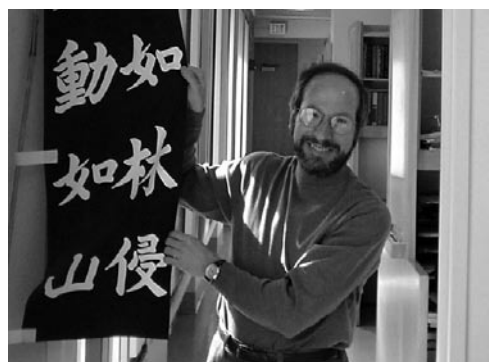 如林侵
動如山